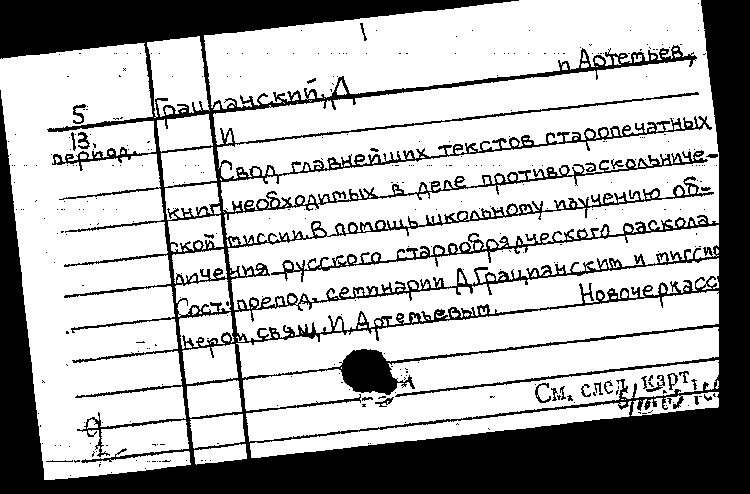 5
Грацианский, Д
и Артемьев,
13.
период.
И
Свод главнейших текстов старопечатных
книг, необходимых в деле противораскольниче-
ской миссии. В помощь школьному изучению об-
личения русского старообрядческого раскола.
Сост.: препод. семинарии Д. Грацианским и миссио
нером, свящ. И. Артемьевым. Новочеркасс
См. след. карт.